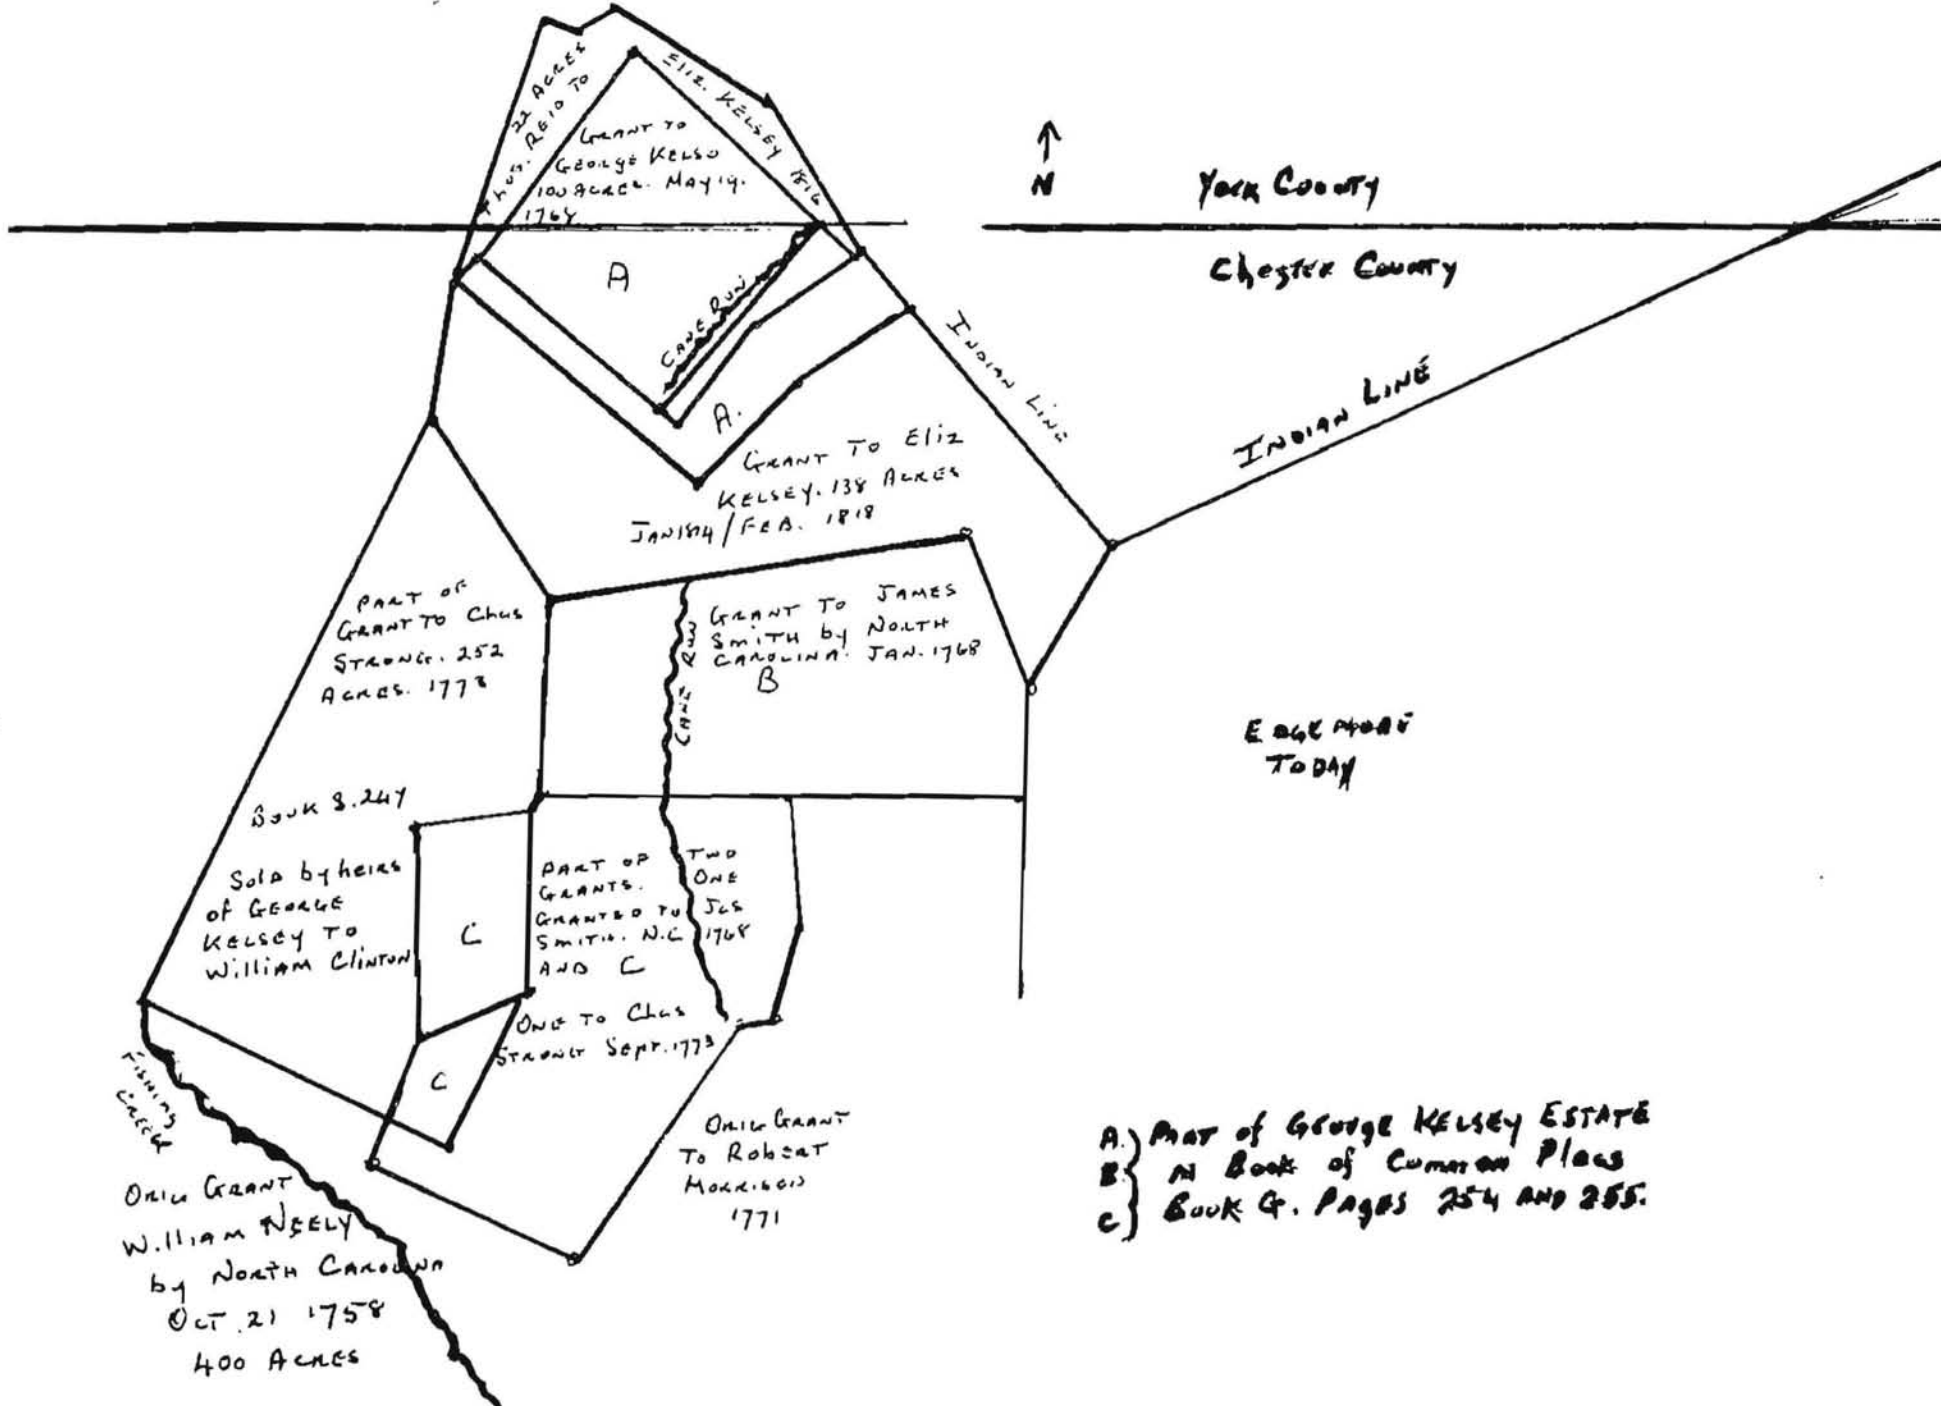 22 ACRES
THOS. REID TO
ELIZ. KELSEY 1816
GRANT TO
GEORGE KELSO
100 ACRES. MAY 19.
1768
A
CANE RUN
A.
↑
N
YORK COUNTY
CHESTER COUNTY
INDIAN LINE
INDIAN LINE
GRANT TO ELIZ
KELSEY. 138 ACRES
JAN 1814 / FEB. 1818
PART OF
GRANT TO Chas
STRONG. 252
ACRES. 1773
CANE RUN
GRANT TO JAMES
SMITH by NORTH
CAROLINA. JAN. 1768
B
EDGEMOOR
TODAY
BOOK S. 247
Sold by heirs
of GEORGE
KELSEY TO
William Clinton
C
PART OF TWO
GRANTS. ONE
GRANTED TO JAS
SMITH. N.C 1768
AND C
ONE TO Chas
STRONG Sept. 1773
C
FISHING
CREEK
ORIG GRANT
William NEELY
by NORTH CAROLINA
OCT. 21 1758
400 ACRES
ORIG GRANT
To Robert
MORRISON
1771
A.) PART of GEORGE KELSEY ESTATE
B.} IN Book of Common Pleas
C} Book G. PAGES 254 AND 255.